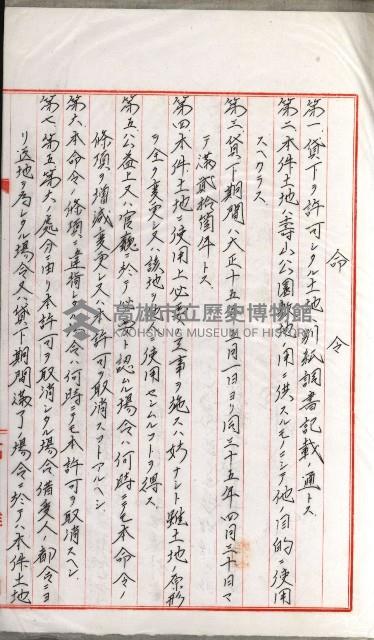 命令
第一、貸下ヲ許可シタル土地ハ別紙調書記載ノ通トス
第二本件土地ハ壽山公園敷地ノ用ニ供スルモノニシテ他ノ目的ニ使用
スヘカラス
第三、貸下期間ハ大正十五年 月一日ヨリ同三十五年四月三十日マ
テ滿貳拾箇年トス
第四本件土地ニ使用上必要ナル工事ヲ施スハ妨ナシト雖土地ノ原形
ヲ全ク変更シ又ハ該地ヲ 使用セシムルコトヲ得ス
第五公益上又ハ官廳ニ於テ必要ト認ムル場合ハ何時ニテモ本命令ノ
條項ヲ増減変更シ又ハ本許可ヲ取消スコトアルヘシ
第六本命令ノ條項ニ違背シタル場合ハ何時ニテモ本許可ヲ取消スヘシ
第七第五第六ノ處分ニ由リ本許可ヲ取消シタル場合借受人ノ都合ニヨ
リ返地ヲ為シタル場合又ハ貸下期間滿了ノ場合ニ於テハ本件土地
高雄市立歷史博物館
KAOHSIUNG MUSEUM OF HISTORY